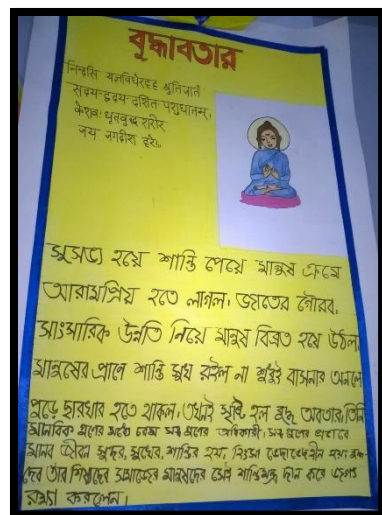 বুদ্ধাবতার
নিন্দসি যজ্ঞবিধেরহহ শ্রুতিজাতং
সদয়-হৃদয়-দর্শিত পশুঘাতম্,
কেশব! ধৃতবুদ্ধ শরীর
জয় জগদীশ হরে।
সুসভ্য হয়ে শান্তি পেয়ে মানুষ ক্রমে
আরামপ্রিয় হতে লাগল। জাতের গৌরব,
সাংসারিক উন্নতি নিয়ে মানুষ বিব্রত হয়ে উঠল,
মানুষের প্রাণে শান্তি সুখ রইল না শুধুই বাসনার অনলে
পুড়ে ছারখার হতে থাকল। তখনই সৃষ্টি হল বুদ্ধ অবতার। তিনি
মানবিক গুণের মধ্যে চরম সত্ত্ব গুণের অধিকারী। সত্ত্ব গুণের প্রভাবে
মানব জীবন সুন্দর, সুখের, শান্তির হয়। হিংসা ভেদাভেদহীন হয়। বুদ্ধ-
দেব তাঁর শিষ্যদের সমাজের মানুষদের সেই শান্তিমন্ত্র দান করে জগৎ
রক্ষা করলেন।